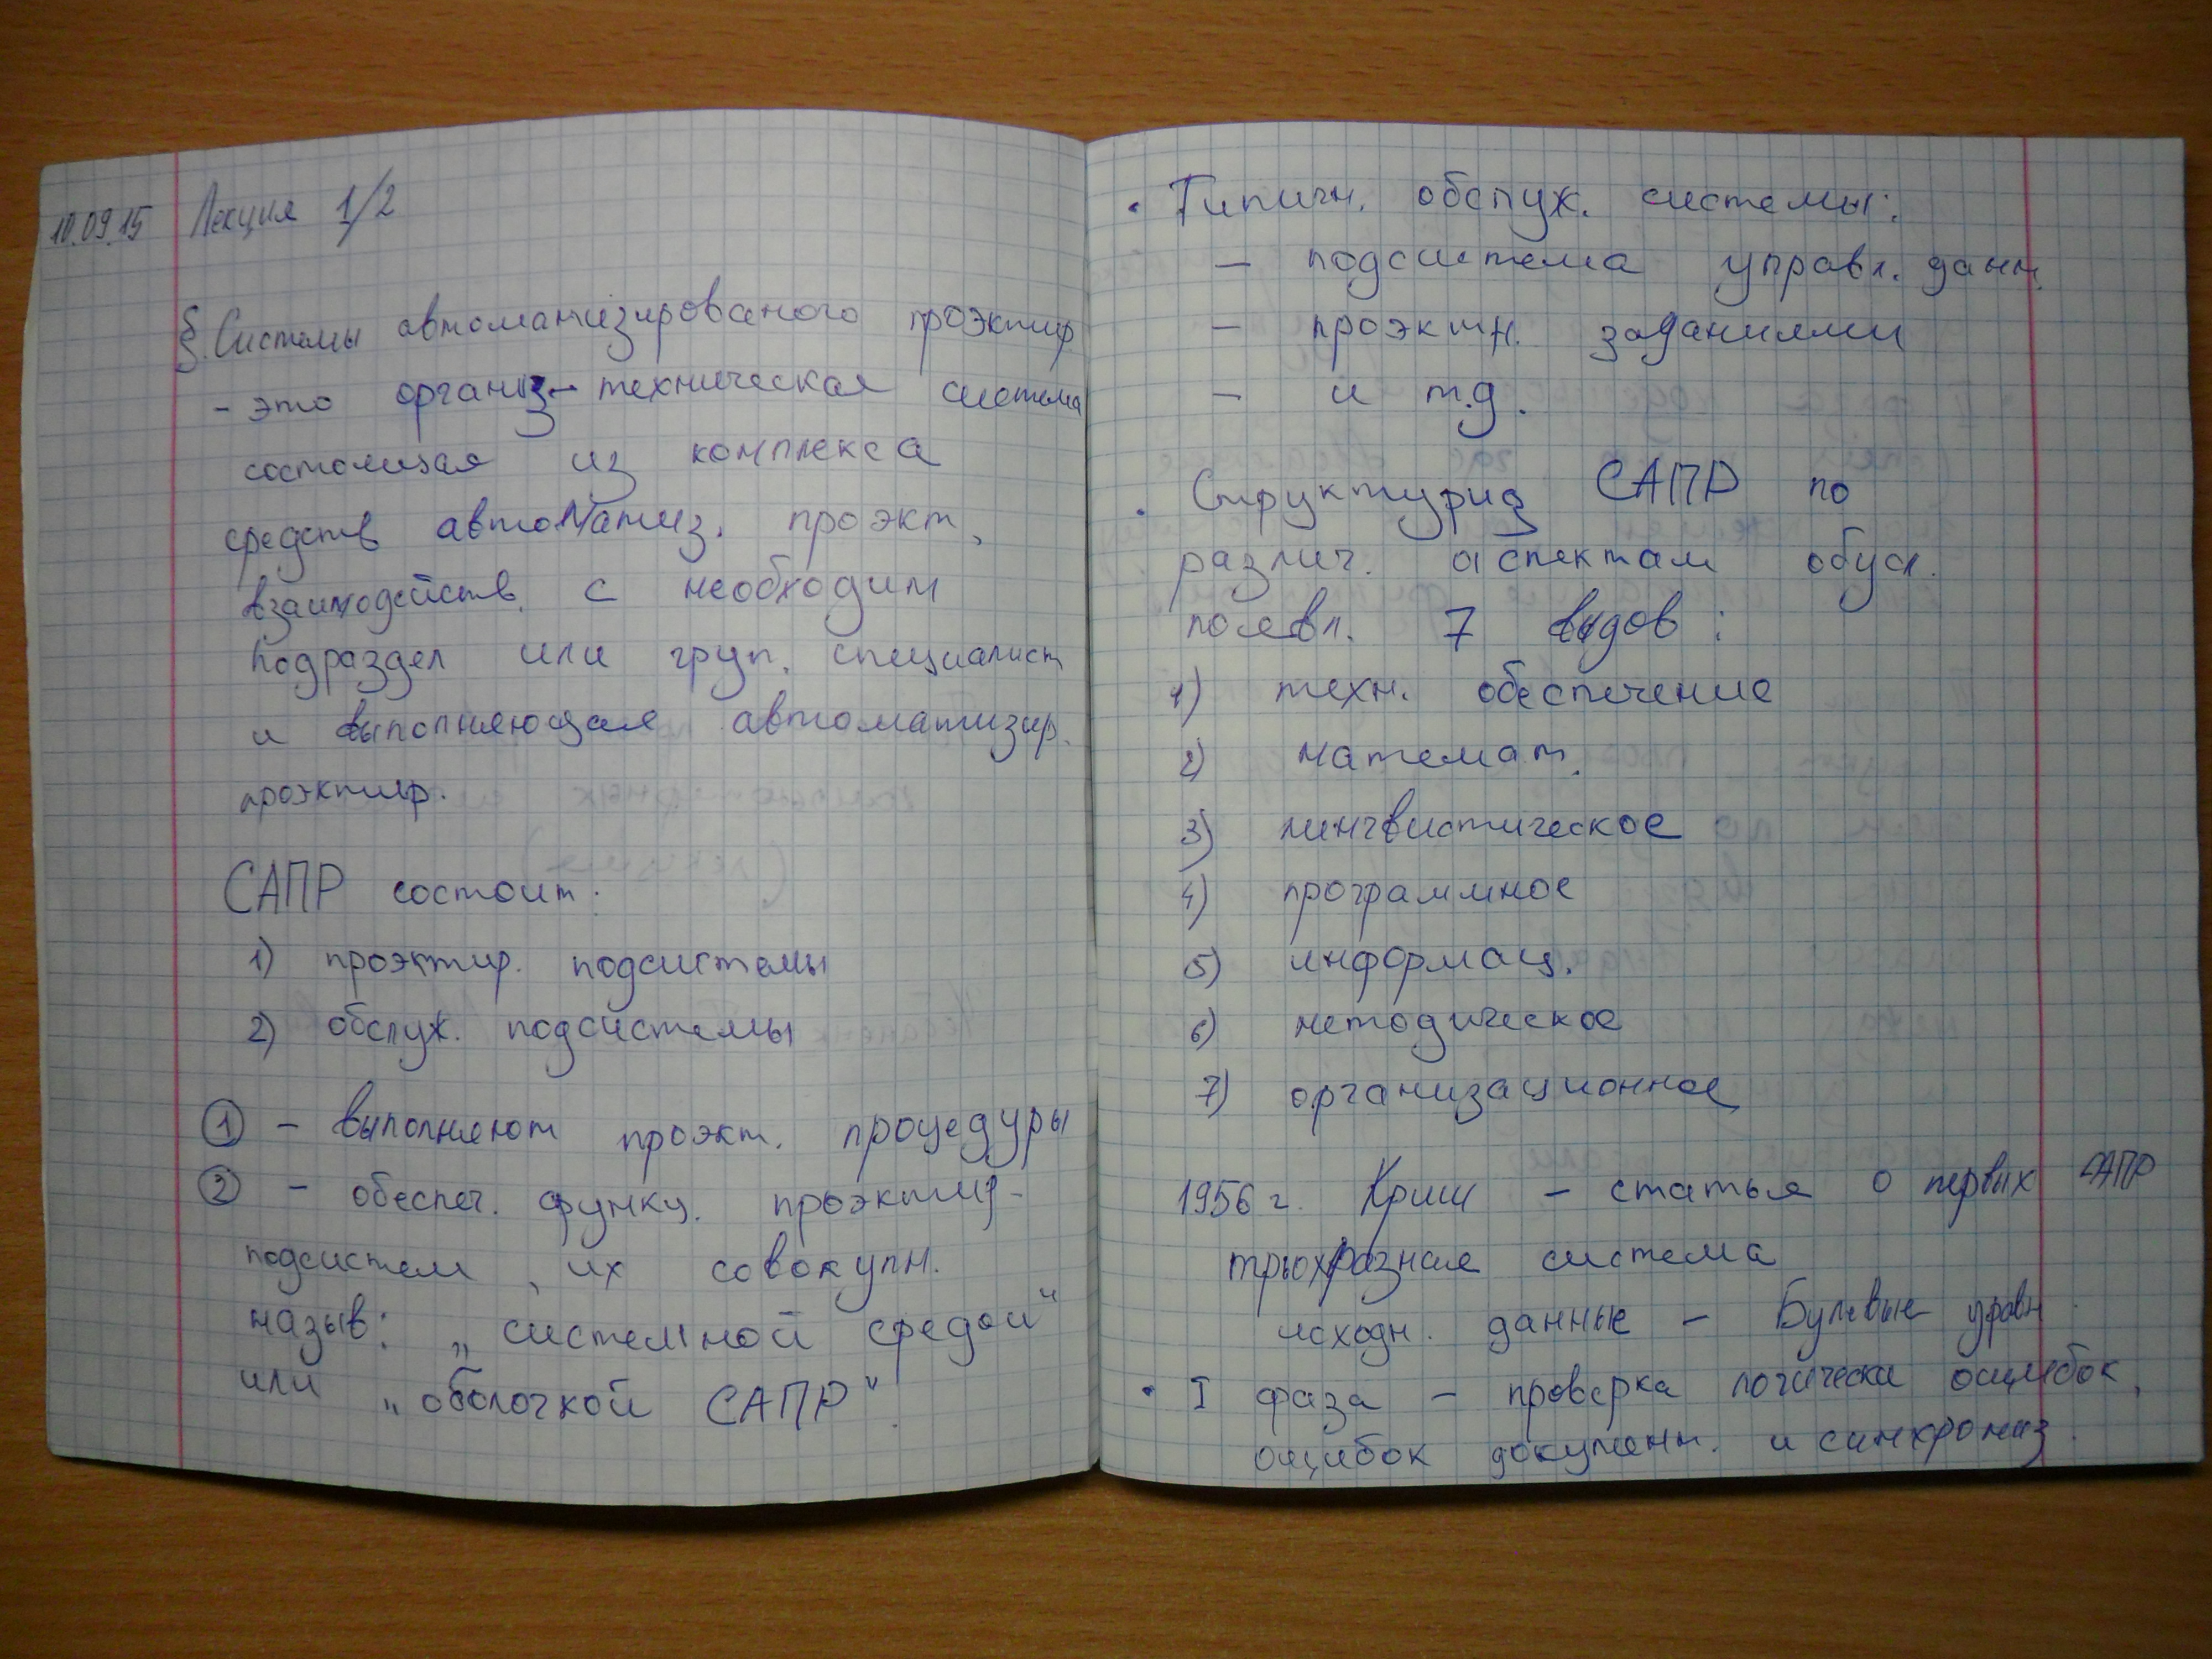 10.09.15 Лекция 1/2
§. Системы автоматизированого проэктир
- это организ-техническая система
состоящая из комплекса
средств автоматиз. проэкт,
взаимодейств. с необходим
подраздел или груп. специалист
и выполняющая автоматизир.
проэктир.
САПР состоит:
1) проэктир. подсистемы
2) обслуж. подсистемы
① - выполняют проэкт. процедуры
② - обеспеч. функц. проэктир-
подсистем, их совокупн.
назыв: „системной средой"
или „оболочкой САПР".
• Типичн. обслуж. системы:
- подсистема управл. данн
- проэктн. заданиями
- и т.д.
• Структурид САПР по
различ. аспектам обусл.
появл. 7 видов:
1) техн. обеспечение
2) математ.
3) лингвистическое
4) программное
5) информац.
6) методическое
7) организационное
1956 г. - статья о первих САПР
трьохфазная система
исходн. данные - Булевые уравн.
• I фаза - проверка логически ошибок,
ошибок документ. и синхрониз.